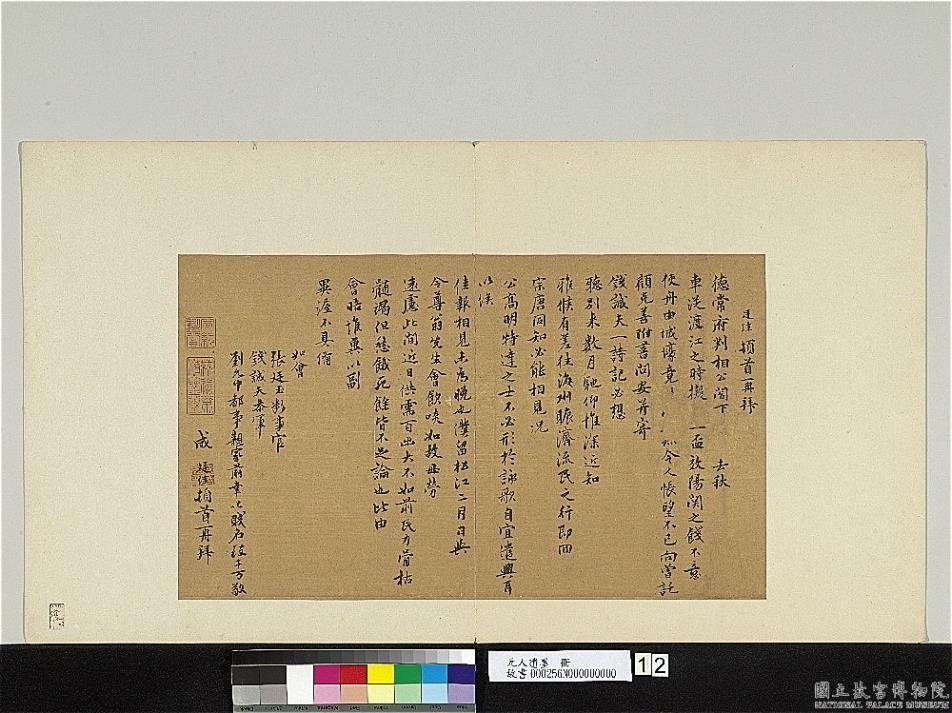 廷珪頓首再拜
德常府判相公閤下 去秋
車從渡江之時擬 一盃效陽關之餞不意
使舟由城壕竟 如 令人悵望不已向嘗託
顧克善附書問安并寄
錢誠夫一詩記必想
聽別來數月馳仰惟深近知
雅候有差往海州賑濟流民之行即回
宗唐同知必能相見況
公高明特達之士不必形於詠歌自宜遣興耳
以俟
佳報相見未為晚也 留松江二月日與
令尊翁先生會飲唉如故毋勞
遠慮此間近日供需百出大不如前民力嘗枯
髓渴但 餓死餘皆不足論也比由
會晤惟冀以副
畢 不具備
如會
張廷玉判事官
錢誠夫參軍
劉九中都事親家前幸以賤名致千万敬
成廷珪頓首再拜
元人遺墨 冊
故書000256N000000000
12
國立故宮博物院
NATIONAL PALACE MUSEUM